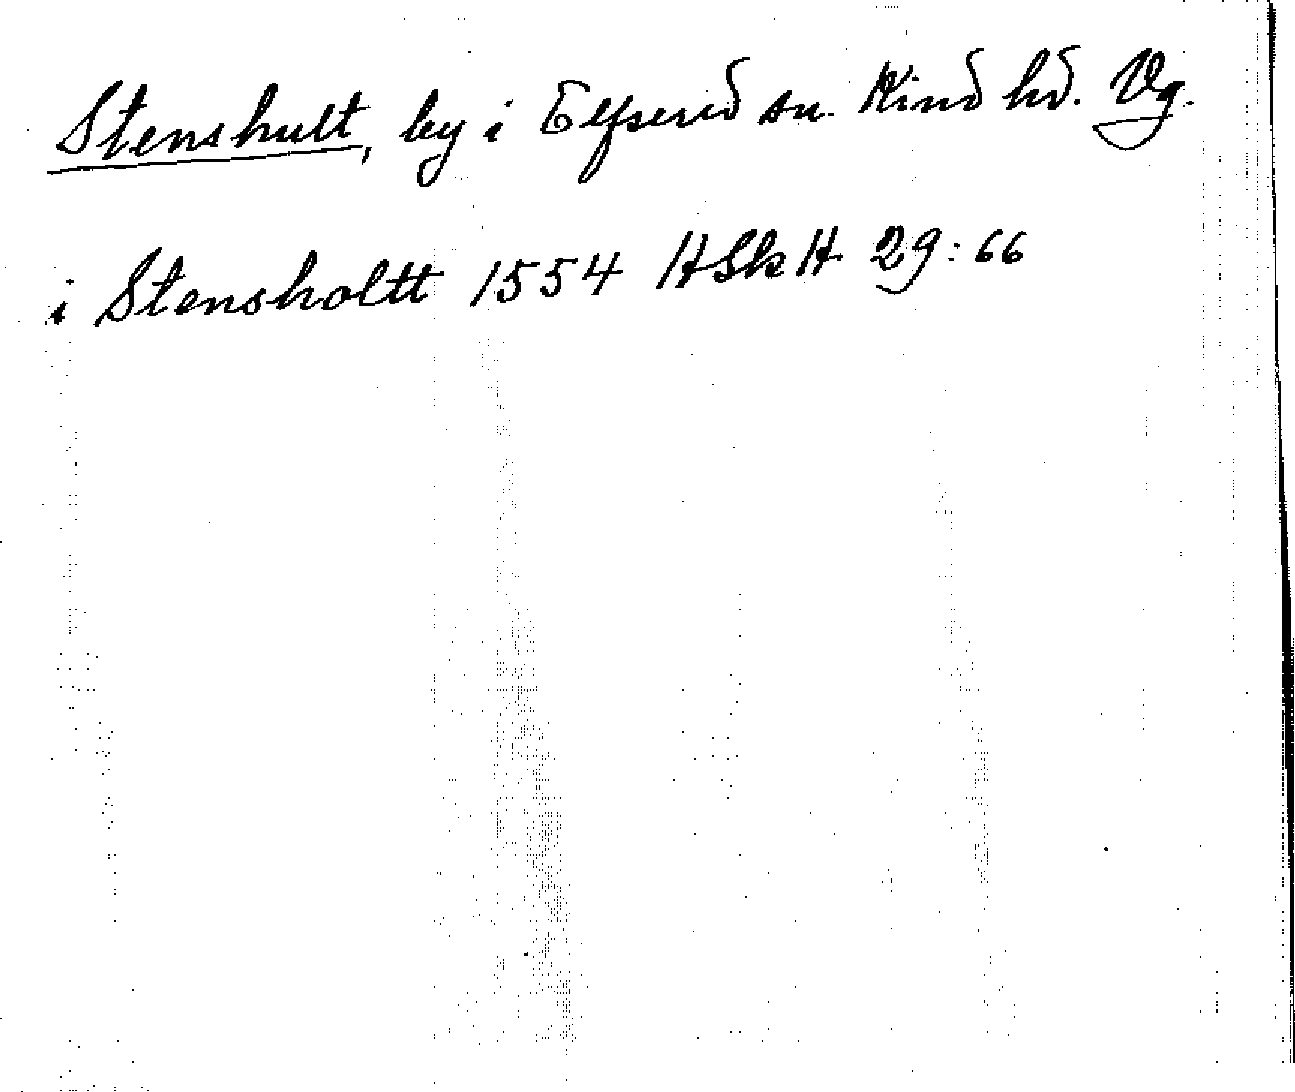 Stenshult, by i Elfsered sn. Kind hd. Vg.
i Stensholtt 1554 HSkH 29:66